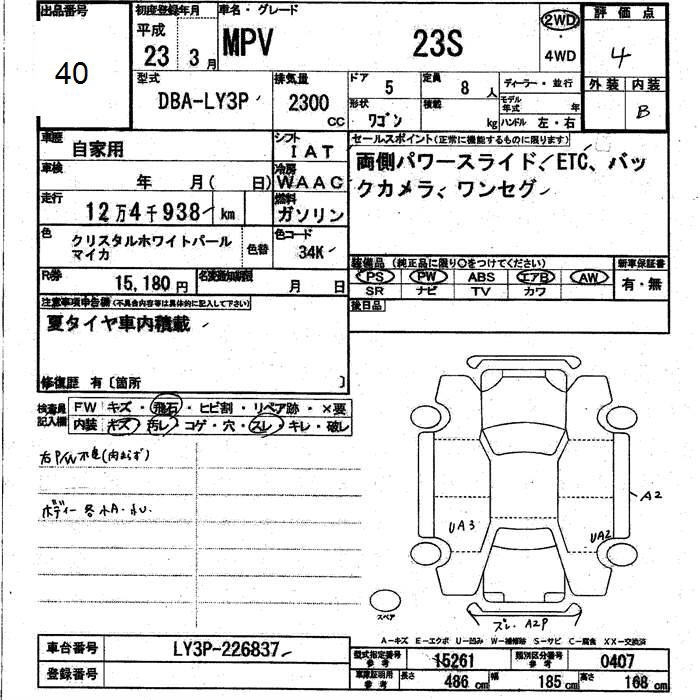 出品番号 初度登録年月 車名・グレード 評価点
40 平成 23 3月 MPV 23S 2WD・4WD 4
型式 排気量 ドア 定員 ディーラー・並行 外装 内装
DBA-LY3P 2300 CC 5 8人 B
形状 積載 モデル年式 年
ワゴン kg ハンドル 左・右
車歴 シフト セールスポイント(正常に機能するものに限ります)
自家用 IAT 両側パワースライド、ETC、バッ
車検 冷房 クカメラ、ワンセグ
年 月( 日) WAAC
走行 燃料
12万4千938 km ガソリン
色 色替 色コード
クリスタルホワイトパール 34K
マイカ
装備品(純正品に限り○をつけてください) 新車保証書
PS PW ABS エアB AW 有・無
SR ナビ TV カワ
R券 15,180円 名変通知期限 月 日
後日品
注意事項申告欄(不具合内容等は具体的に記入して下さい)
夏タイヤ車内積載
修復歴 有〔箇所 〕
検査員記入欄 FW キズ・飛石・ヒビ割・リペア跡・×要
内装 キズ・汚レ・コゲ・穴・スレ・キレ・破レ
右P/W不良
ボディー各小A・小U
A2
UA3
UA2
スレ A2P
スペア
A-キズ E-エクボ U-凹み W-補修跡 S-サビ C-腐食 XX-交換済
車台番号 LY3P-226837
登録番号
型式指定番号 参考 15261 類別区分番号 参考 0407
車庫証明用 参考 長さ 486cm 幅 185cm 高さ 168cm